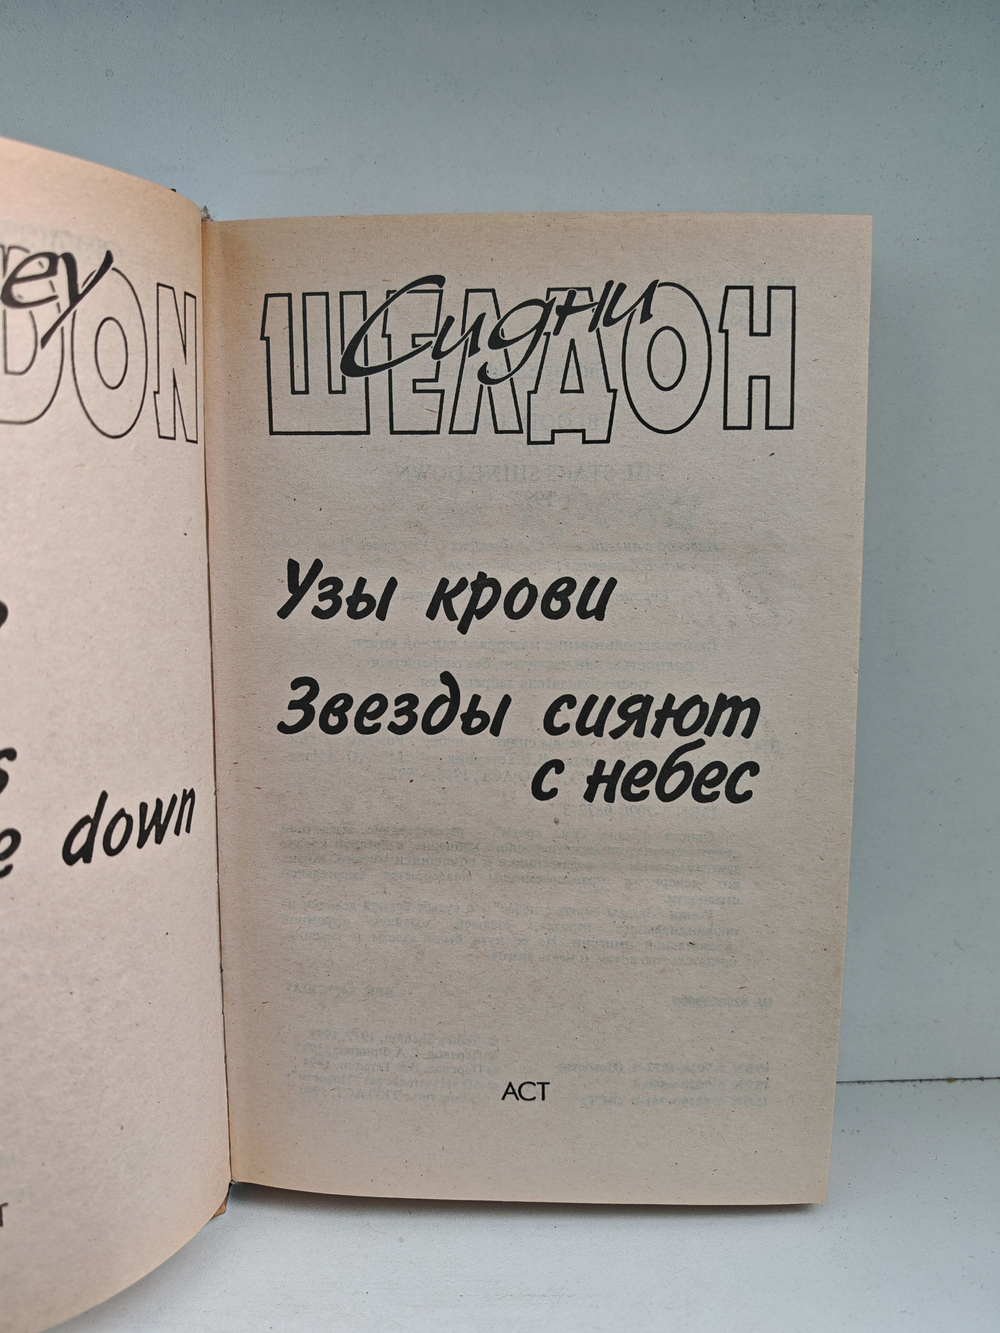 rey
DON
down
Сидни
ШЕЛДОН
Узы крови
Звезды сияют
с небес
АСТ